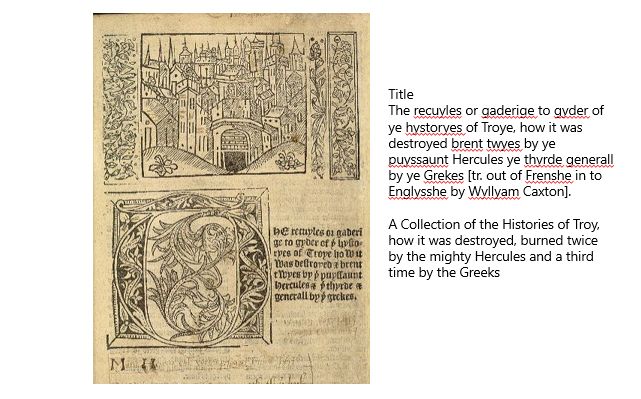 hE recuyles or gaderi
ge to gyder of yͤ hysto⸗
ryes of Troye how it
was destroyed & brent
twyes by yͤ puyssaunt
Hercules & yͤ thyrde &
generall by yͤ grekes.
M H
Title
The recuyles or gaderige to gyder of
ye hystoryes of Troye, how it was
destroyed brent twyes by ye
puyssaunt Hercules ye thyrde generall
by ye Grekes [tr. out of Frenshe in to
Englysshe by Wyllyam Caxton].
A Collection of the Histories of Troy,
how it was destroyed, burned twice
by the mighty Hercules and a third
time by the Greeks